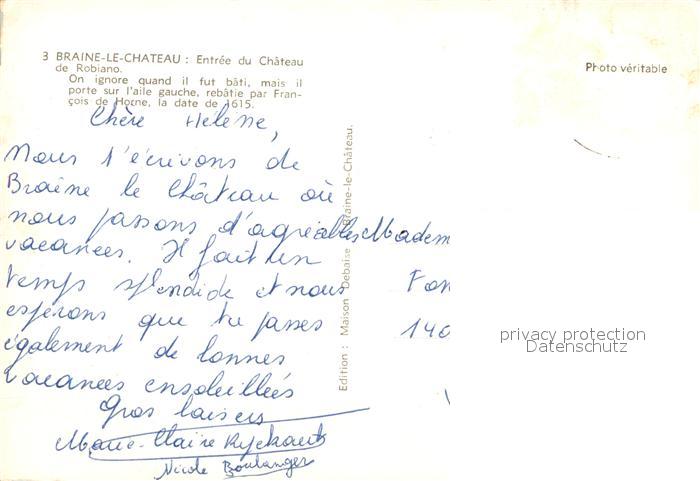 3 BRAINE-LE-CHATEAU : Entrée du Château
de Robiano.
On ignore quand il fut bâti, mais il
porte sur l'aile gauche, rebâtie par Fran-
çois de Horne, la date de 1615.
Photo véritable
Chère Hélène,
Nous t'écrivons de
Braine le Château où
nous passons d'agréables
vacances. Il fait un
temps splendide et nous
espérons que tu passes
également de bonnes
vacances ensoleillées
Gros baisers
Marie-Claire Ryckaert
Nicole Boulanger
Edition : Maison Debaise Braine-le-Château.
Madem
Fon
140
privacy protection
Datenschutz